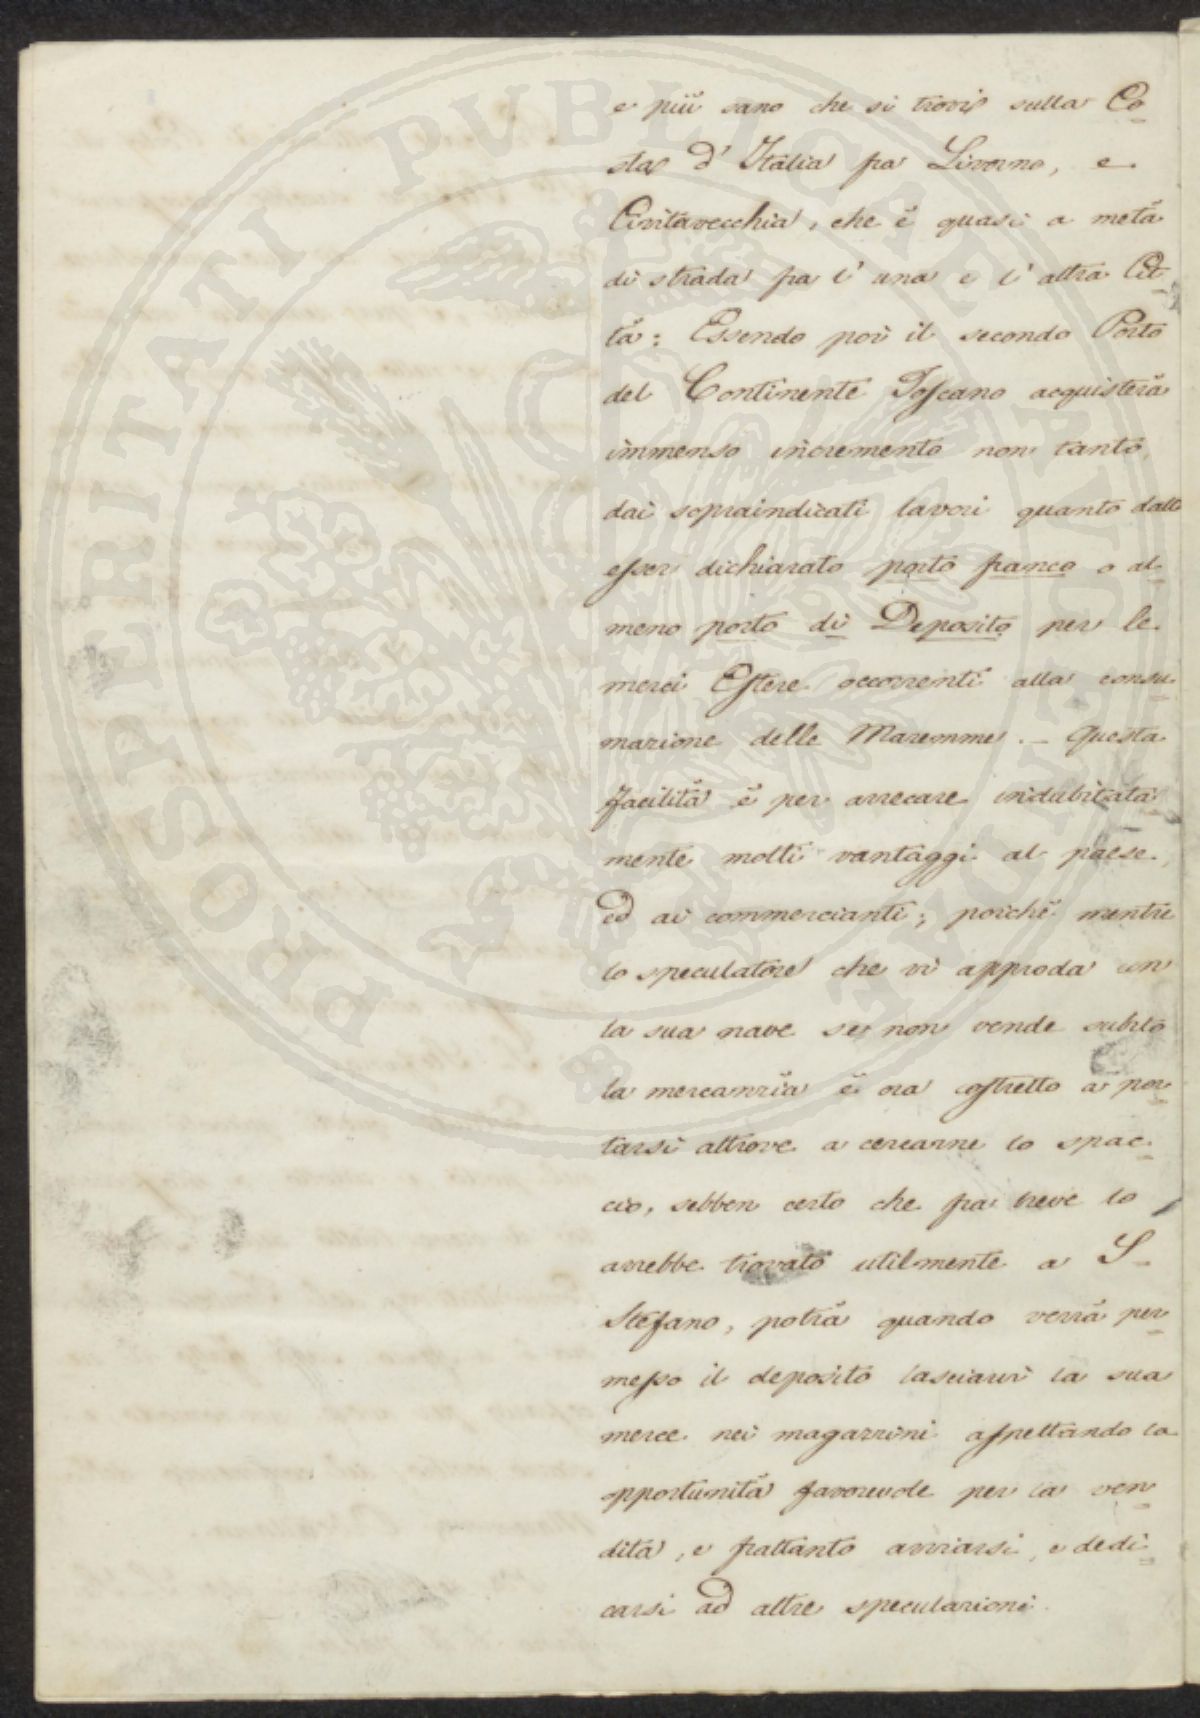 e più sano che si trovi sulla Co-
sta d'Italia fra Livorno, e
Civitavecchia, che è quasi a metà
di strada fra l'una e l'altra Cit-
tà: Essendo poi il secondo Porto
del Continente Toscano acquisterà
immenso incremento non tanto
dai sopraindicati lavori quanto dallo
esser dichiarato porto franco o al-
meno porto di Deposito per le
merci Estere occorrenti alla consu-
mazione delle Maremme. — Questa
facilità è per arrecare indubitata-
mente molti vantaggi al paese,
ed ai commercianti; poichè mentre
lo speculatore che vi approda con
la sua nave se non vende subito
la mercanzia è ora costretto a por-
tarsi altrove a cercarne lo spac-
cio, sebben certo che fra breve lo
avrebbe trovato utilmente a S.
Stefano, potrà quando verrà per-
messo il deposito lasciarvi la sua
merce nei magazzini aspettando la
opportunità favorevole per la ven-
dita, e frattanto avviarsi, e dedi-
carsi ad altre speculazioni.
PROSPERITATI PUBLICAE AUGENDAE